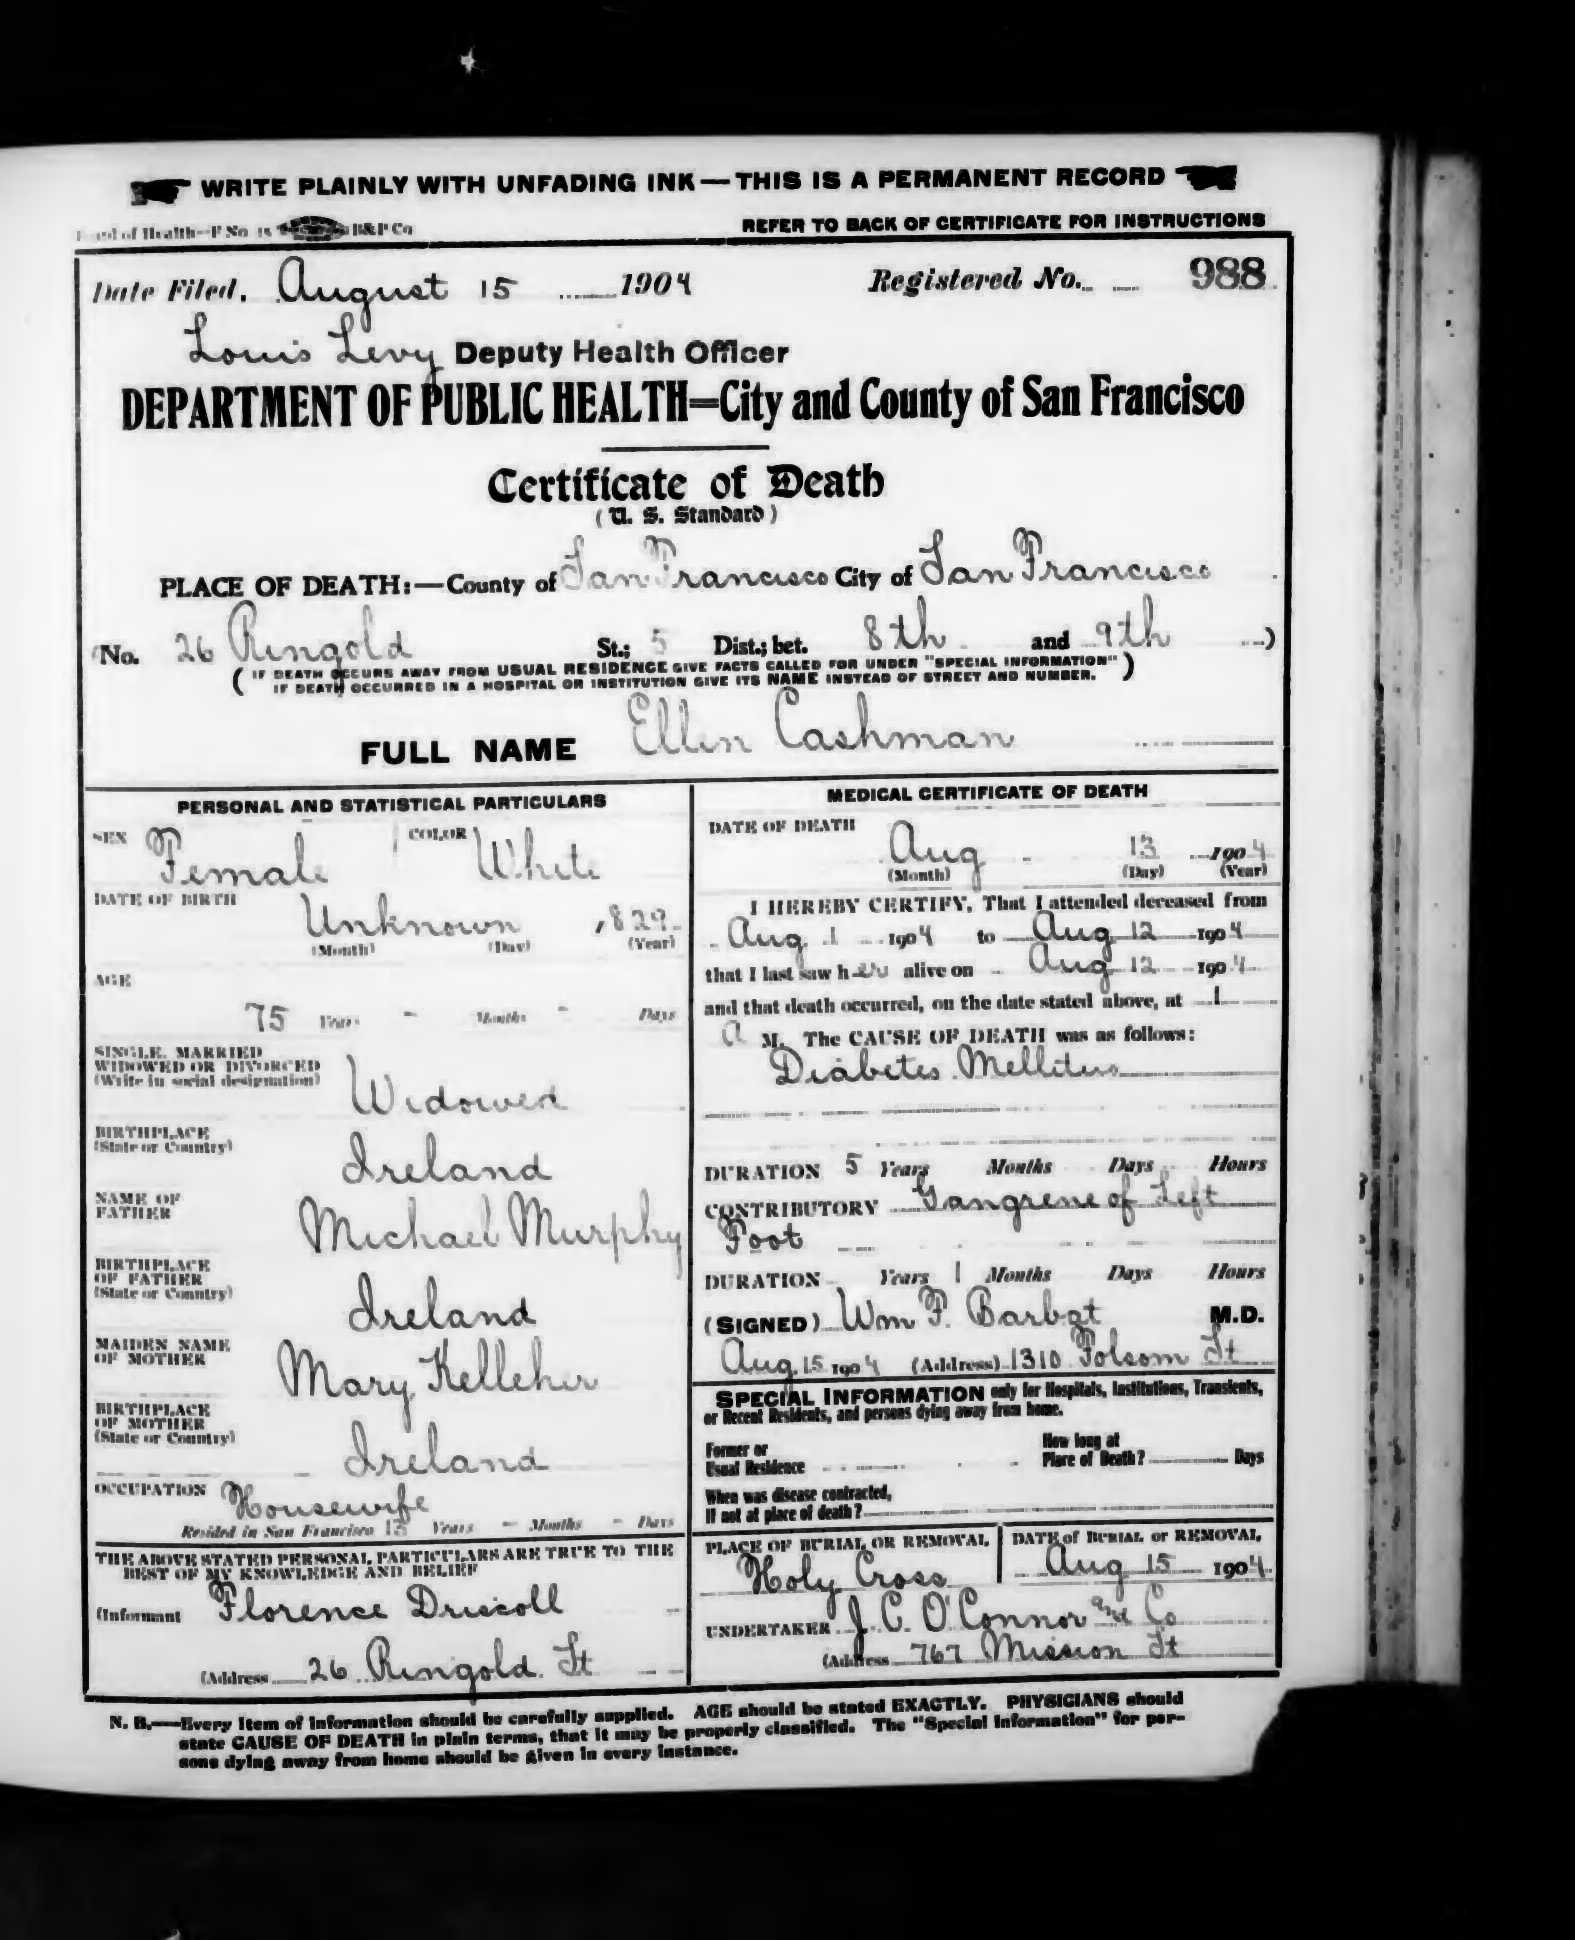 WRITE PLAINLY WITH UNFADING INK — THIS IS A PERMANENT RECORD
Board of Health—F No 15 B&P Co
REFER TO BACK OF CERTIFICATE FOR INSTRUCTIONS
Date Filed, August 15 1904 Registered No. 988
Louis Levy Deputy Health Officer
DEPARTMENT OF PUBLIC HEALTH=City and County of San Francisco
Certificate of Death
(U. S. Standard)
PLACE OF DEATH:—County of San Francisco City of San Francisco
(No. 26 Ringold St.; 5 Dist.; bet. 8th and 9th )
( IF DEATH OCCURS AWAY FROM USUAL RESIDENCE GIVE FACTS CALLED FOR UNDER "SPECIAL INFORMATION" )
IF DEATH OCCURRED IN A HOSPITAL OR INSTITUTION GIVE ITS NAME INSTEAD OF STREET AND NUMBER.
FULL NAME Ellen Cashman
PERSONAL AND STATISTICAL PARTICULARS
SEX Female COLOR White
DATE OF BIRTH
Unknown 1829
(Month) (Day) (Year)
AGE
75 Years - Months - Days
SINGLE, MARRIED
WIDOWED OR DIVORCED
(Write in social designation)
Widowed
BIRTHPLACE
(State or Country)
Ireland
NAME OF
FATHER
Michael Murphy
BIRTHPLACE
OF FATHER
(State or Country)
Ireland
MAIDEN NAME
OF MOTHER
Mary Kelleher
BIRTHPLACE
OF MOTHER
(State or Country)
Ireland
OCCUPATION Housewife
Resided in San Francisco 13 Years - Months - Days
THE ABOVE STATED PERSONAL PARTICULARS ARE TRUE TO THE
BEST OF MY KNOWLEDGE AND BELIEF
(Informant Florence Driscoll
(Address 26 Ringold St
MEDICAL CERTIFICATE OF DEATH
DATE OF DEATH
Aug 13 1904
(Month) (Day) (Year)
I HEREBY CERTIFY, That I attended deceased from
Aug 1 1904 to Aug 12 1904
that I last saw her alive on Aug 12 1904
and that death occurred, on the date stated above, at 1
A M. The CAUSE OF DEATH was as follows:
Diabetes Mellitus
DURATION 5 Years Months Days Hours
CONTRIBUTORY Gangrene of Left
Foot
DURATION Years 1 Months Days Hours
(SIGNED) Wm F. Barbat M.D.
Aug 15 1904 (Address) 1310 Folsom St
SPECIAL INFORMATION only for Hospitals, Institutions, Transients,
or Recent Residents, and persons dying away from home.
Former or
Usual Residence
How long at
Place of Death? Days
When was disease contracted,
If not at place of death?
PLACE OF BURIAL OR REMOVAL
Holy Cross
DATE of BURIAL or REMOVAL
Aug 15 1904
UNDERTAKER J. C. O'Connor and Co
(Address 767 Mission St
N. B.—Every item of information should be carefully supplied. AGE should be stated EXACTLY. PHYSICIANS should
state CAUSE OF DEATH in plain terms, that it may be properly classified. The "Special Information" for per-
sons dying away from home should be given in every instance.